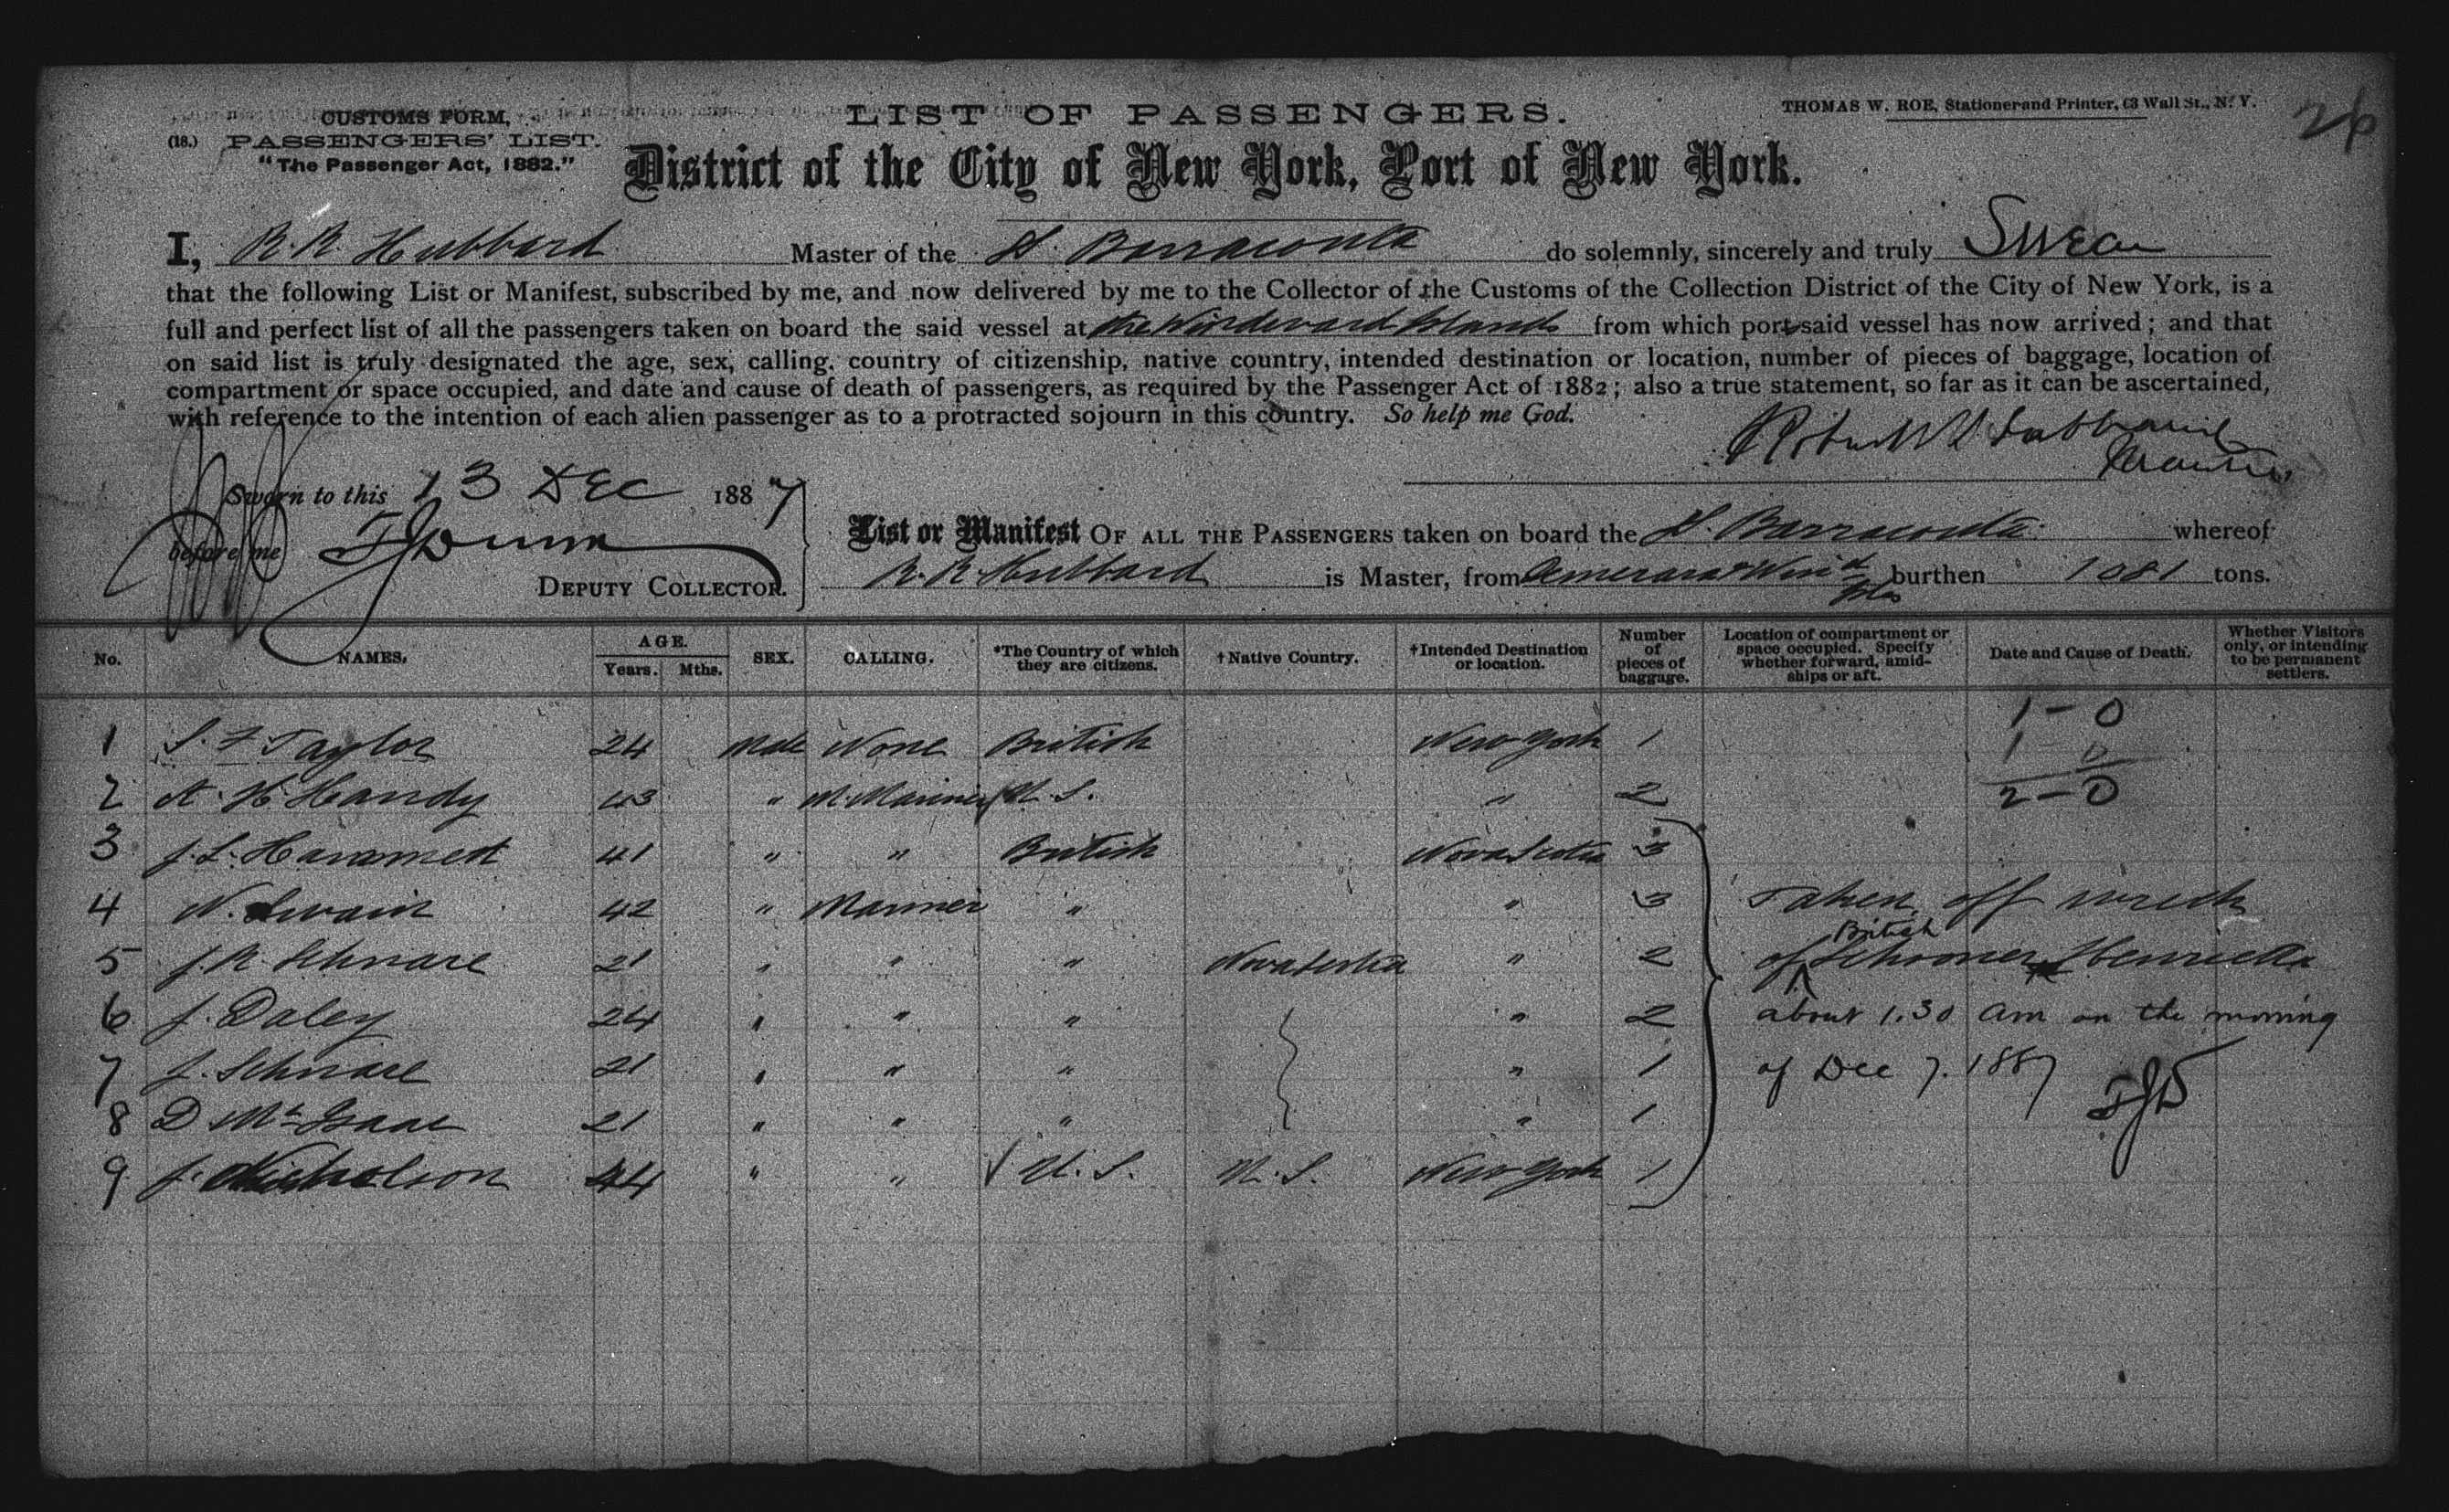 CUSTOMS FORM,
(18.) PASSENGERS' LIST.
"The Passenger Act, 1882."
LIST OF PASSENGERS.
THOMAS W. ROE, Stationer and Printer, 63 Wall St., N. Y.
26
District of the City of New York, Port of New York.
I, R. R. Hubbard Master of the S. Barracouta do solemnly, sincerely and truly Swear
that the following List or Manifest, subscribed by me, and now delivered by me to the Collector of the Customs of the Collection District of the City of New York, is a
full and perfect list of all the passengers taken on board the said vessel at the Windward Islands from which port said vessel has now arrived; and that
on said list is truly designated the age, sex, calling, country of citizenship, native country, intended destination or location, number of pieces of baggage, location of
compartment or space occupied, and date and cause of death of passengers, as required by the Passenger Act of 1882; also a true statement, so far as it can be ascertained,
with reference to the intention of each alien passenger as to a protracted sojourn in this country. So help me God.
Sworn to this 13 Dec 1887
before me
DEPUTY COLLECTOR.
List or Manifest OF ALL THE PASSENGERS taken on board the S. Barracouta whereof
R. R. Hubbard is Master, from burthen 1081 tons.
No. NAMES. AGE. Years. Mths. SEX. CALLING. *The Country of which they are citizens. †Native Country. †Intended Destination or location. Number of pieces of baggage. Location of compartment or space occupied. Specify whether forward, amidships or aft. Date and Cause of Death. Whether Visitors only, or intending to be permanent settlers.
1-0
1 S. F Taylor 24 Male None British New York 1
1 0
2 A. H. Handy 43 " M. Mariner U. S. " 2
2-0
3 J. L. 41 " " British Nova Scotia 3
4 N. Swain 42 " Mariner " " 3 Taken off wreck
5 J. R. Schnare 21 " " " Nova Scotia " 2 of British Schooner Henrietta
6 J. Daley 24 " " " " 2 about 1.30 am on the morning
7 J. Schnare 21 " " " " 1 of Dec 7. 1887
8 D McIsaac 21 " " " " 1 TJD
9 J. Nicholson 44 " " U. S. U. S. New York 1